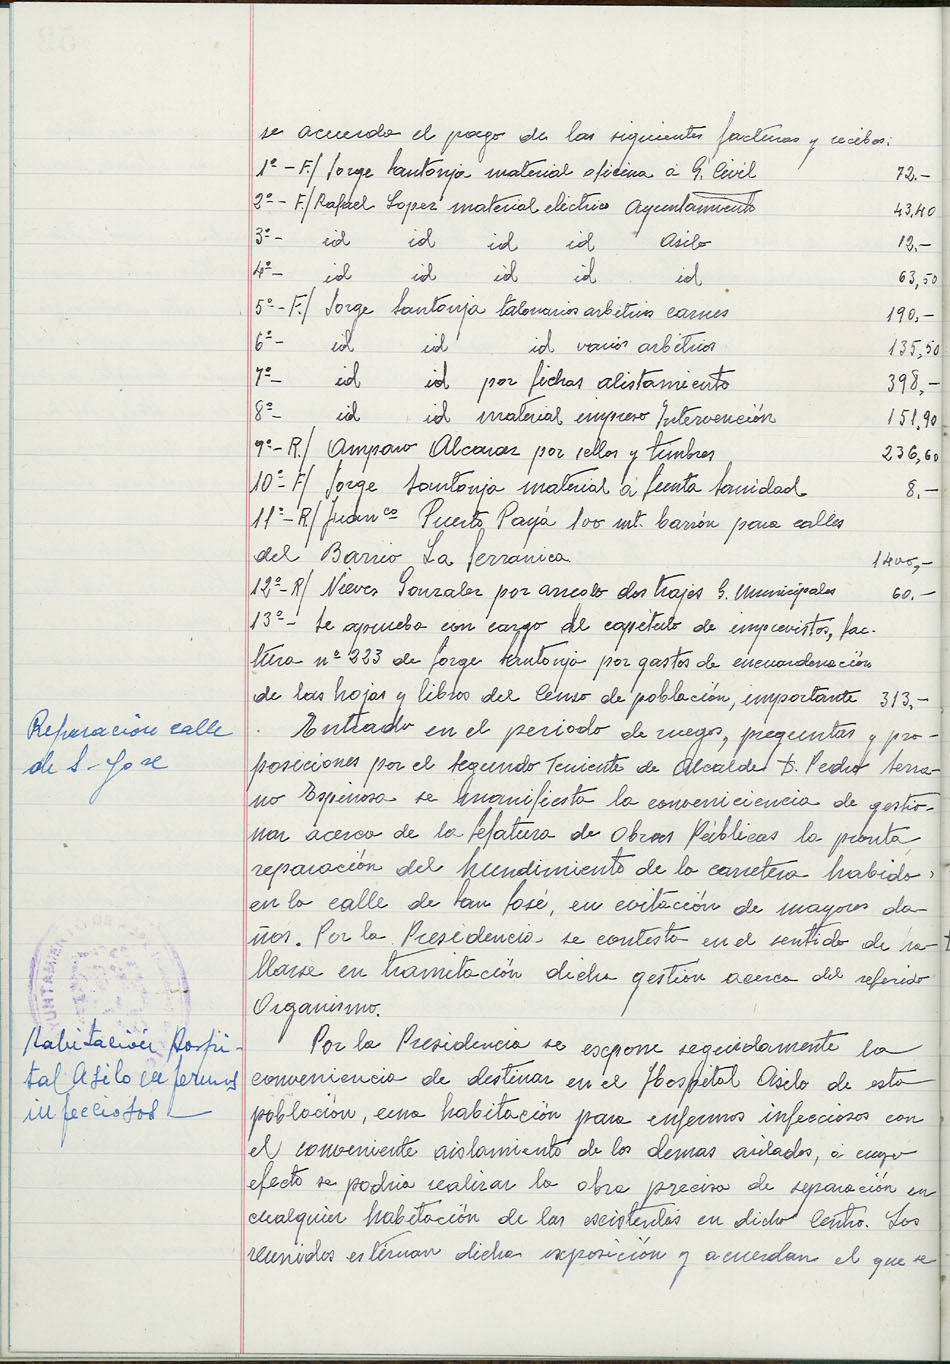 se acuerda el pago de las siguientes facturas y recibos:
1º - F/ Jorge Santonja material oficina a G. Civil 72.-
2º - F/ Rafael Lopez material electrico Ayuntamiento 43,40
3º - id id id id Asilo 12.-
4º - id id id id id 63,50
5º - F/ Jorge Santonja talonarios arbitrios carnes 190,-
6º - id id id varios arbitrios 135,50
7º - id id por fichas alistamiento 398,-
8º - id id material impreso Intervención 151,90
9º - R/ Amparo Alcaraz por sellos y timbres 236,60
10º - F/ Jorge Santonja material a Junta Sanidad 8.-
11º - R/ Franco Puerto Payá 100 mt. barrón para calles
del Barrio La Serranica 1400,-
12º - R/ Nieves Gonzalez por arreglo dos trajes G. Municipales 60.-
13º - Se aprueba con cargo al capitulo de imprevistos, fac-
tura nº 223 de Jorge Santonja por gastos de encuardenación
de las hojas y libros del Censo de población, importante 313,-
Reparación calle
de S- Jose
Entrado en el periodo de ruegos, preguntas y pro-
posiciones por el Segundo Teniente de Alcalde D. Pedro Serra-
no Espinosa se manifiesta la conveniciencia de gestio-
nar acerca de la Jefatura de Obras Públicas la pronta
reparación del hundimiento de la carretera habido
en la calle de San José, en evitación de mayores da-
ños. Por la Presidencia se contesta en el sentido de ha-
llarse en tramitación dicha gestión acerca del referido
Organismo.
AYUNTAMIENTO
Habitación Hospi-
tal Asilo enfermos
infecciosos
Por la Presidencia se expone seguidamente la
conveniencia de destinar en el Hospital Asilo de esta
población, una habitación para enfermos infecciosos con
el conveniente aislamiento de los demas asilados, a cuyo
efecto se podria realizar la obra precisa de separación en
cualquier habitación de las existentes en dicho Centro. Los
reunidos estiman dicha exposición y acuerdan el que se